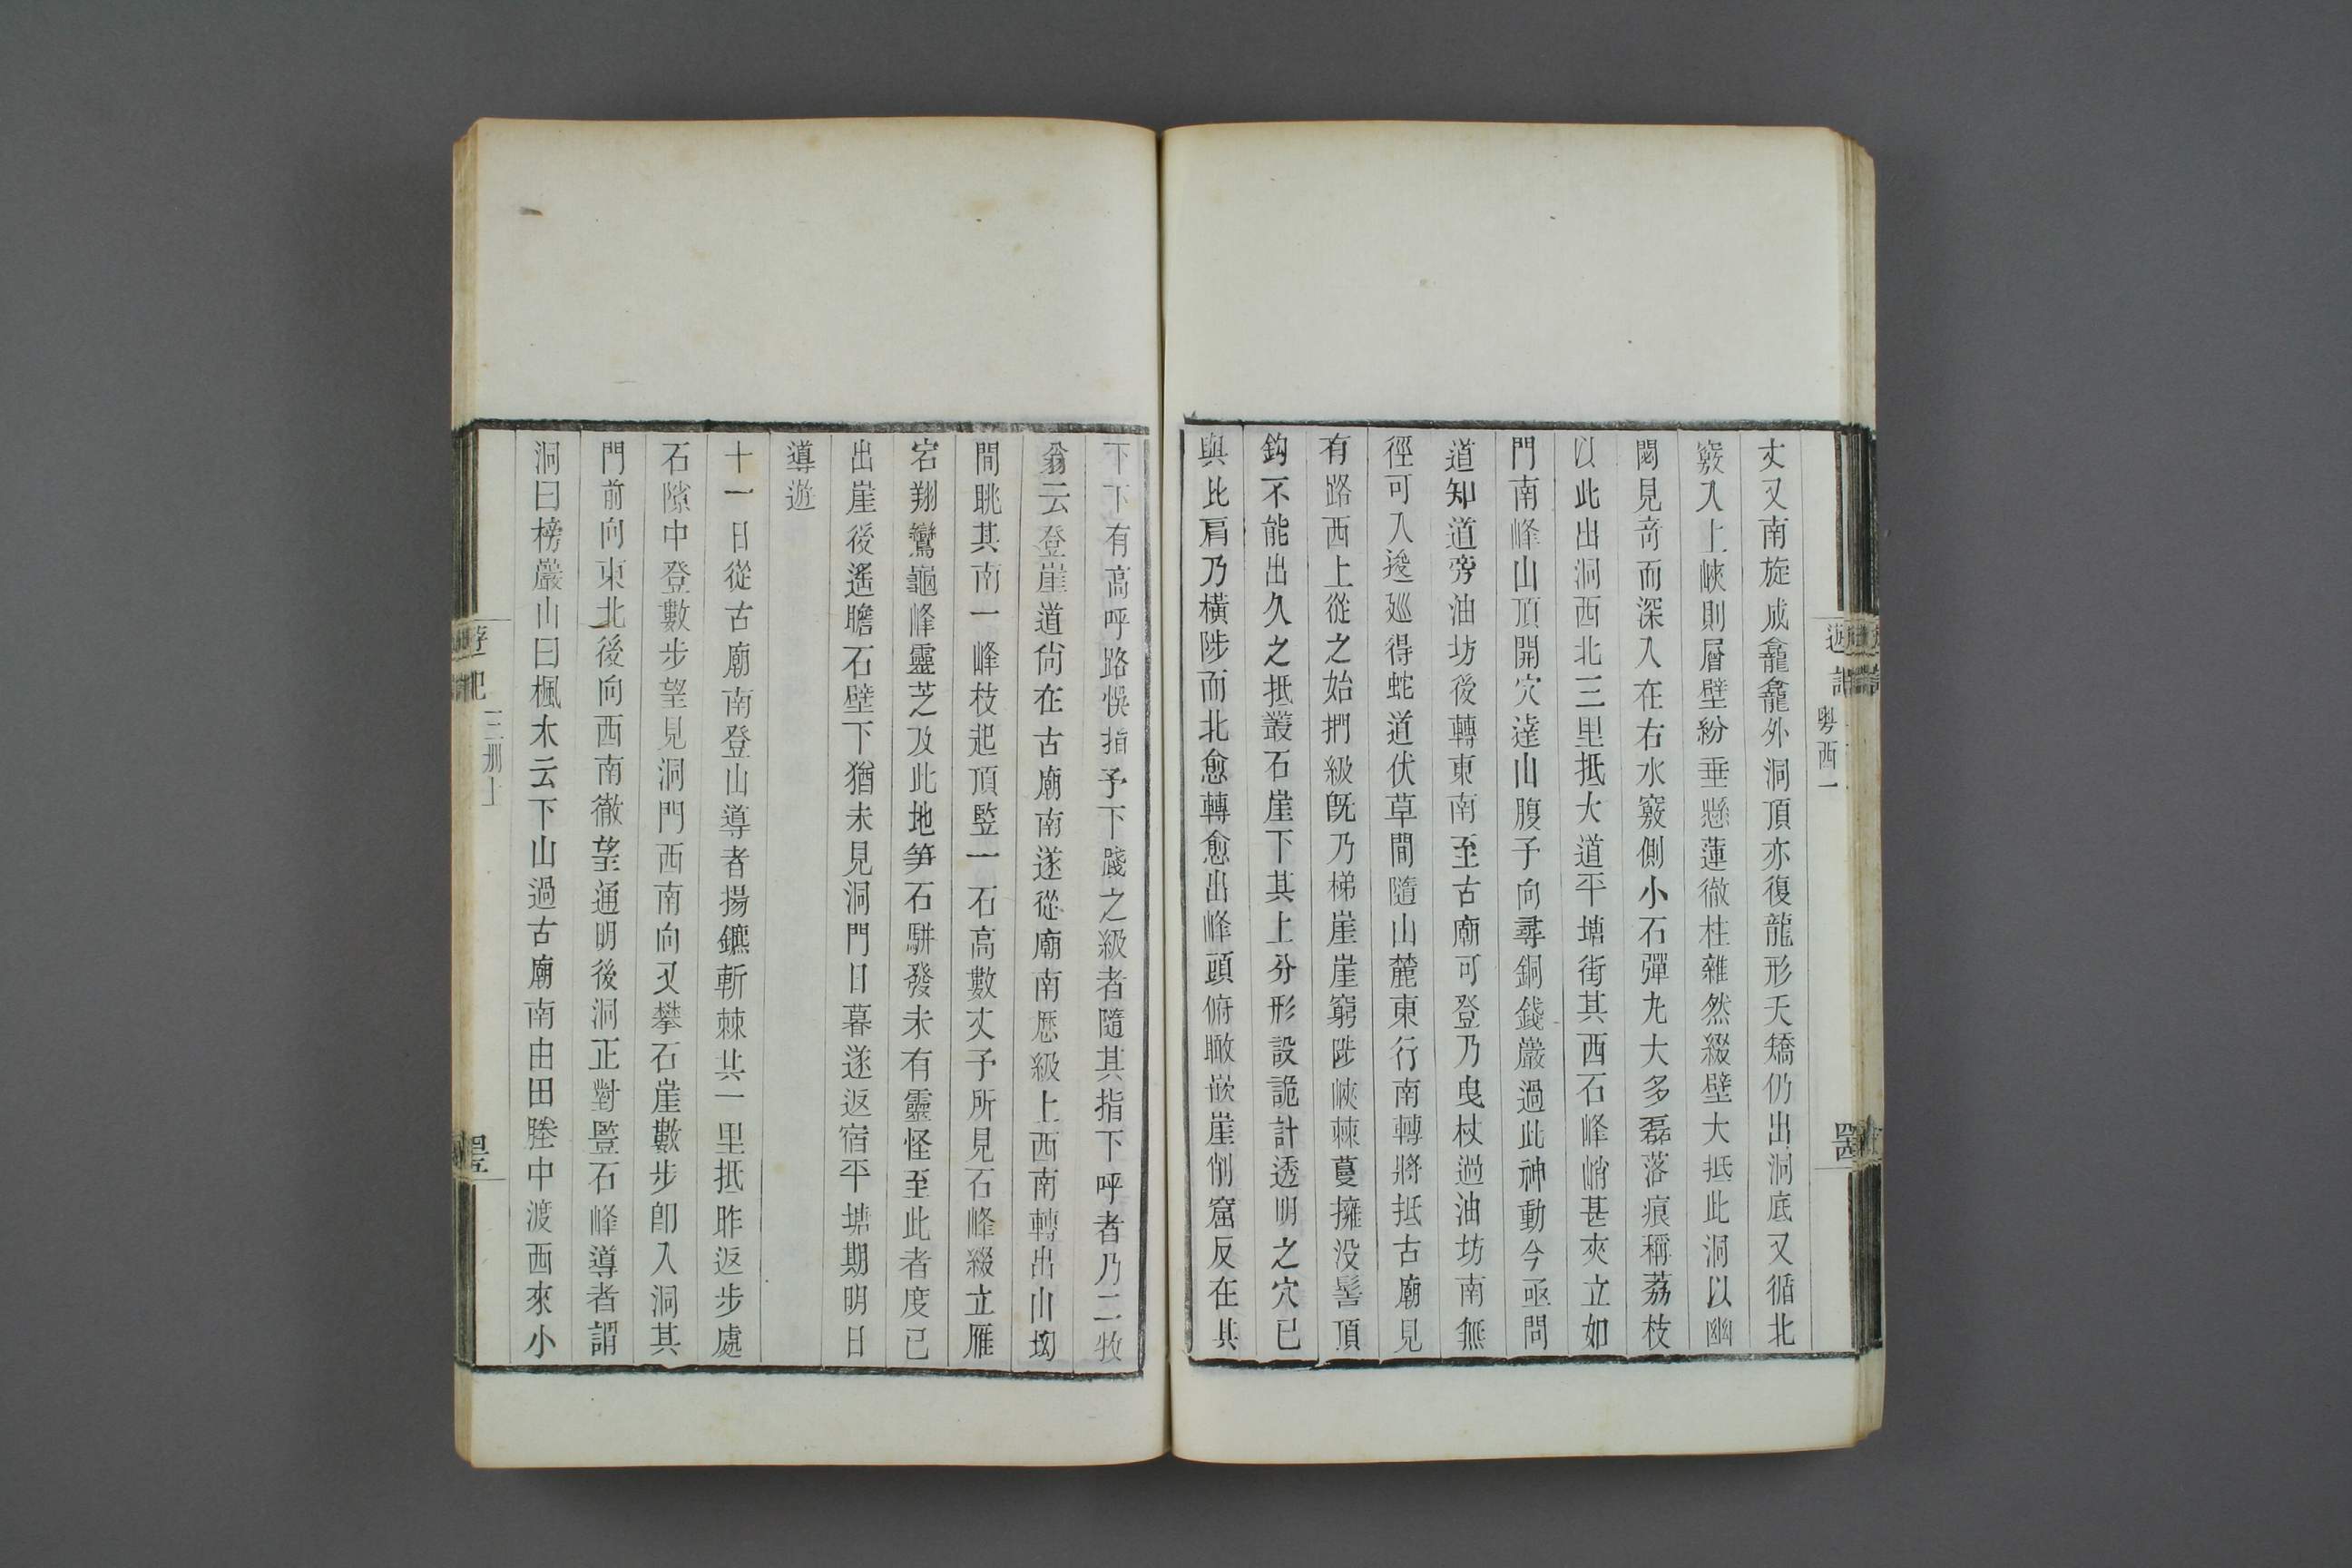 遊記
粤西一
丈又南旋成龕龕外洞頂亦復龍形夭矯仍出洞底又循北
竅入上峽則層壁紛垂懸蓮徹柱雜然綴壁大抵此洞以幽
閟見奇而深入在右水竅側小石彈丸大多磊落痕稱荔枝
以此出洞西北三里抵大道平塘街其西石峰峭甚夾立如
門南峰山頂開穴達山腹予向尋銅錢巖過此神動今亟問
道知道旁油坊後轉東南至古廟可登乃曳杖過油坊南無
徑可入逡廵得蛇道伏草間隨山麓東行南轉將抵古廟見
有路西上從之始捫級旣乃梯崖崖窮陟峽棘蔓擁没髻頂
鈎不能出久之抵叢石崖下其上分形設詭計透明之穴已
與比肩乃橫陟而北愈轉愈出峰頭俯瞰嵌崖削窟反在其
下下有高呼路悞指予下踐之級者隨其指下呼者乃二牧
翁云登崖道尙在古廟南遂從廟南歷級上西南轉出山坳
間眺其南一峰枝起頂豎一石高數丈予所見石峰綴立雁
宕翔鸞龜峰靈芝及此地笋石駢發未有靈怪至此者度已
出崖後遙瞻石壁下猶未見洞門日暮遂返宿平塘期明日
導遊
十一日從古廟南登山導者揚鑣斬棘共一里抵昨返步處
石隙中登數步望見洞門西南向又攀石崖數步卽入洞其
門前向東北後向西南徹望通明後洞正對豎石峰導者謂
洞曰榜巖山曰楓木云下山過古廟南由田塍中渡西來小
三册上